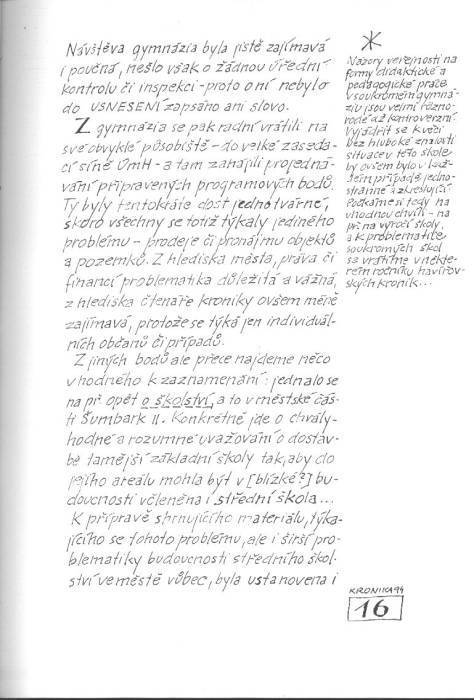 Návštěva gymnázia byla jistě zajímavá
i poučná, nešlo však o žádnou úřední
kontrolu či inspekci – proto o ní nebylo
do USNESENÍ zapsáno ani slovo.
Z gymnázia se pak radní vrátili na
své obvyklé působiště – do velké zaseda-
cí síně ÚmH – a tam zahájili projedná-
vání připravených programových bodů.
Ty byly tentokráte dost jednotvárné,
skoro všechny se totiž týkaly jediného
problému – prodeje či pronájmu objektů
a pozemků. Z hlediska města, práva či
financí problematika důležitá a vážná,
z hlediska čtenáře kroniky ovšem méně
zajímavá, protože se týká jen individuál-
ních občanů či případů.
Z jiných bodů ale přece najdeme něco
vhodného k zaznamenání: jednalo se
na př opět o školství, a to v městské čás-
ti Šumbark II. Konkrétně jde o chvály-
hodné a rozumné uvažování o dostav-
bě tamější základní školy tak, aby do
jejího areálu mohla být v [blízké?] bu-
doucnosti včleněna i střední škola...
K přípravě shrnujícího materiálu, týka-
jícího se tohoto problému, ale i širší pro-
blematiky budoucnosti středního škol-
ství ve městě vůbec, byla ustanovena i
*
Názory veřejnosti na
formy didaktické a
pedagogické práce
v soukromém gymná-
ziu jsou velmi různo-
rodé až kontroverzní.
Vyjádřit se k věci
bez hluboké znalosti
situace v této škole
by ovšem bylo v kaž-
dém případě jedno-
stranné a zkreslující.
Počkáme si tedy na
vhodnou chvíli – na
př na výročí školy,
a k problematice
soukromých škol
se vrátíme v někte-
rém ročníku havířov-
ských kronik...
KRONIKA 94
16